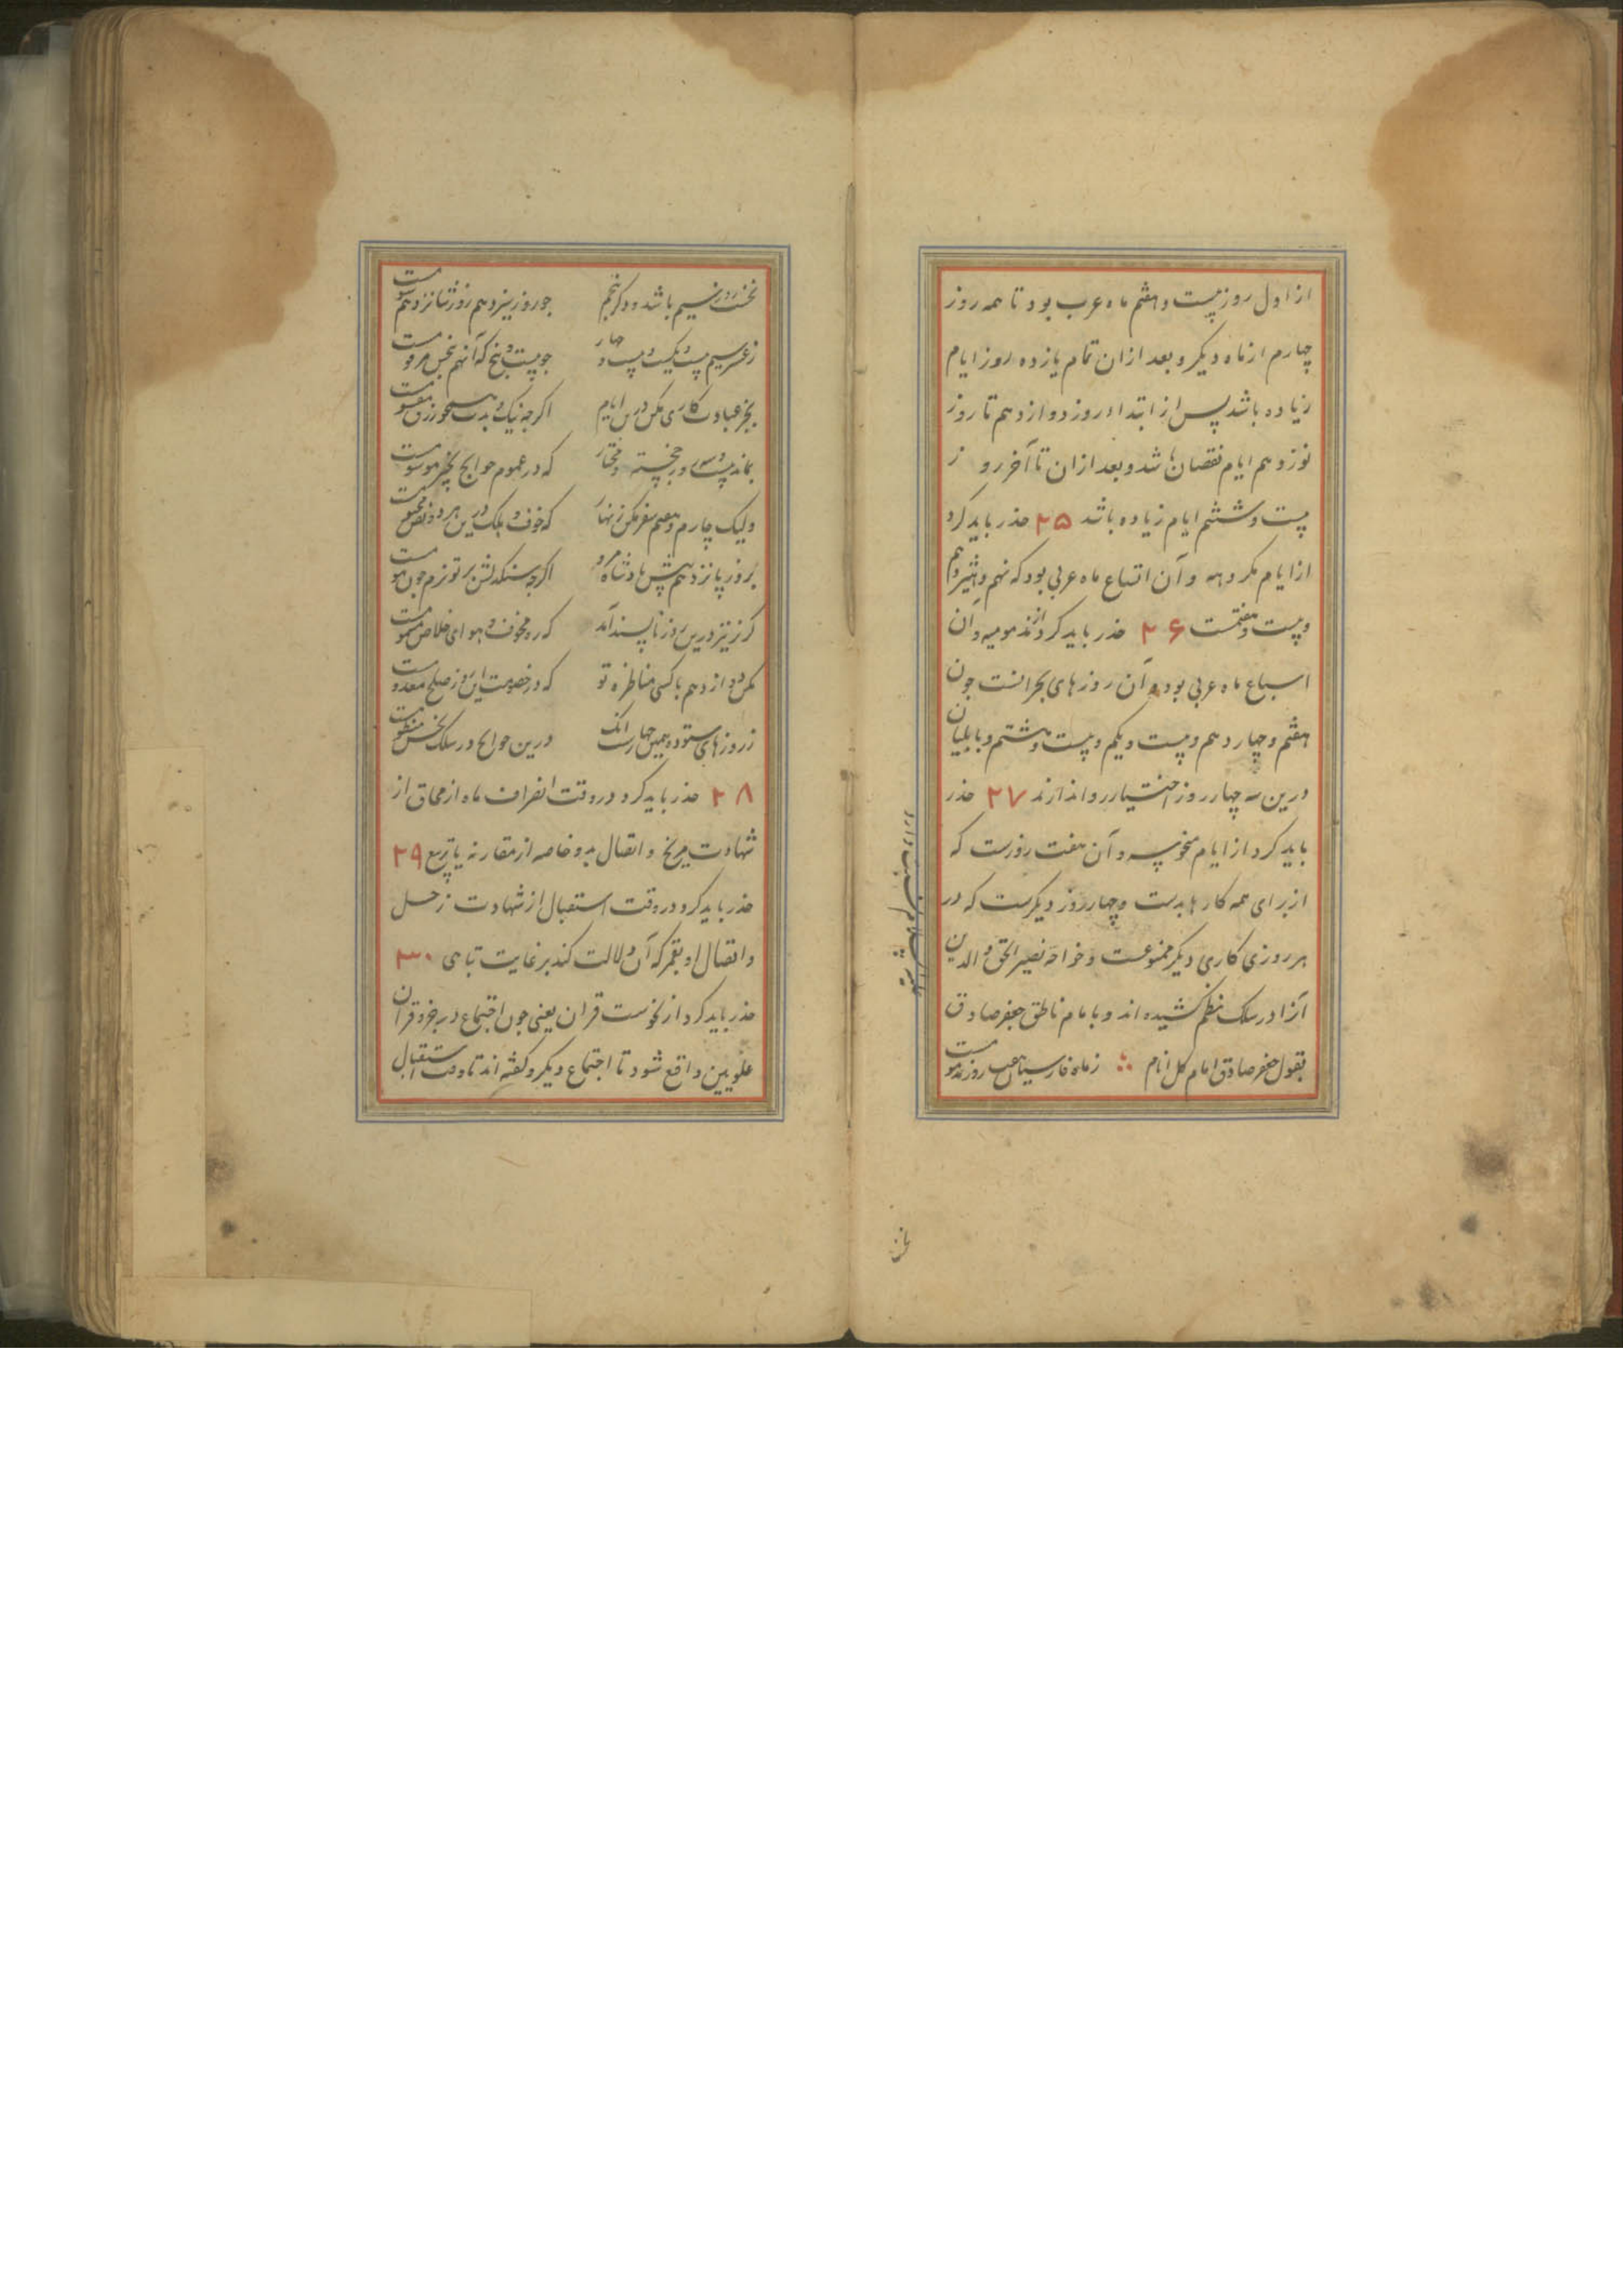 از اول روز بیست و هفتم ماه عرب بود تا همه روز
چهارم از ماه دیگر و بعد از ان تمام یازده روز ایام
زیاده باشد پس از ابتداء روز دوازدهم تا روز
نوزدهم ایام نقصان باشد و بعد از ان تا آخر روز
بیست و ششم ایام زیاده باشد ۲۵ حذر باید کرد
از ایام مکروهه و آن اتساع ماه عربی بود که نهم و هیژدهم
و بیست و هفتمست ۲۶ حذر باید کرد از مذمومیه و آن
اسباع ماه عربی بود و آن روزهای بحرانست جون
هفتم و چهاردهم و بیست و یکم و بیست و هشتم و بابلیان
درین سه چهار روز اختیار روا ندارند ۲۷ حذر
باید کرد از ایام منحوسه و آن هفت روزست که
از برای همه کارها بدست و چهار روز دیگرست که در
هر روزی کاری دیگر ممنوعست و خواجه نصیر الحق و الدین
آنرا در سلک نظم کشیده اند و بامام ناطق جعفر صادق
بقول جعفر صادق امام کل انام زماه فارسیان هفت روز مذمومست
نخست روز سیم باشد و دکر پنجم جو روز سیزدهم روز شانزدهم شومست
ز عشر سیم بیست و یک و بیست و چهار جو بیست و پنج که آنهم بنحس مرقومست
بجز عبادت کاری مکن درین ایام اکرجه نیک و بدت همجو رزق مقسومست
بماند بیست و سه روز خجسته و مختار که در عموم حوایج بخیر موسومست
ولیک چارم و هفتم سفر مکن زنهار که خوف و هلک درین هر دو نص محتومست
بروز پانزدهم پیش پادشاه مرو اکرچه سنکدلش بر تو نرم جون مومست
کریز نیز درین روز ناپسند آمد که ره مخوف و هوای خلاص مسمومست
مکن دوازدهم با کسی مناظره تو که در خصومت این روز صلح معدومست
ز روزهای ستوده همین چهارست انک درین حوایج در سلک نحس منظومست
۲۸ حذر باید کرد در وقت انصراف ماه از محاق از
شهادت مریخ و اتصال بدو خاصه از مقارنه یا تربیع ۲۹
حذر باید کرد در وقت استقبال از شهادت زحل
و اتصال او بقمر که آن دلالت کند بر غایت تباهی ۳۰
حذر باید کرد از نحوست قران یعنی جون اجتماع در جزو قران
علویین واقع شود تا اجتماع دیکر و کفته اند تا وقت استقبال
نخست